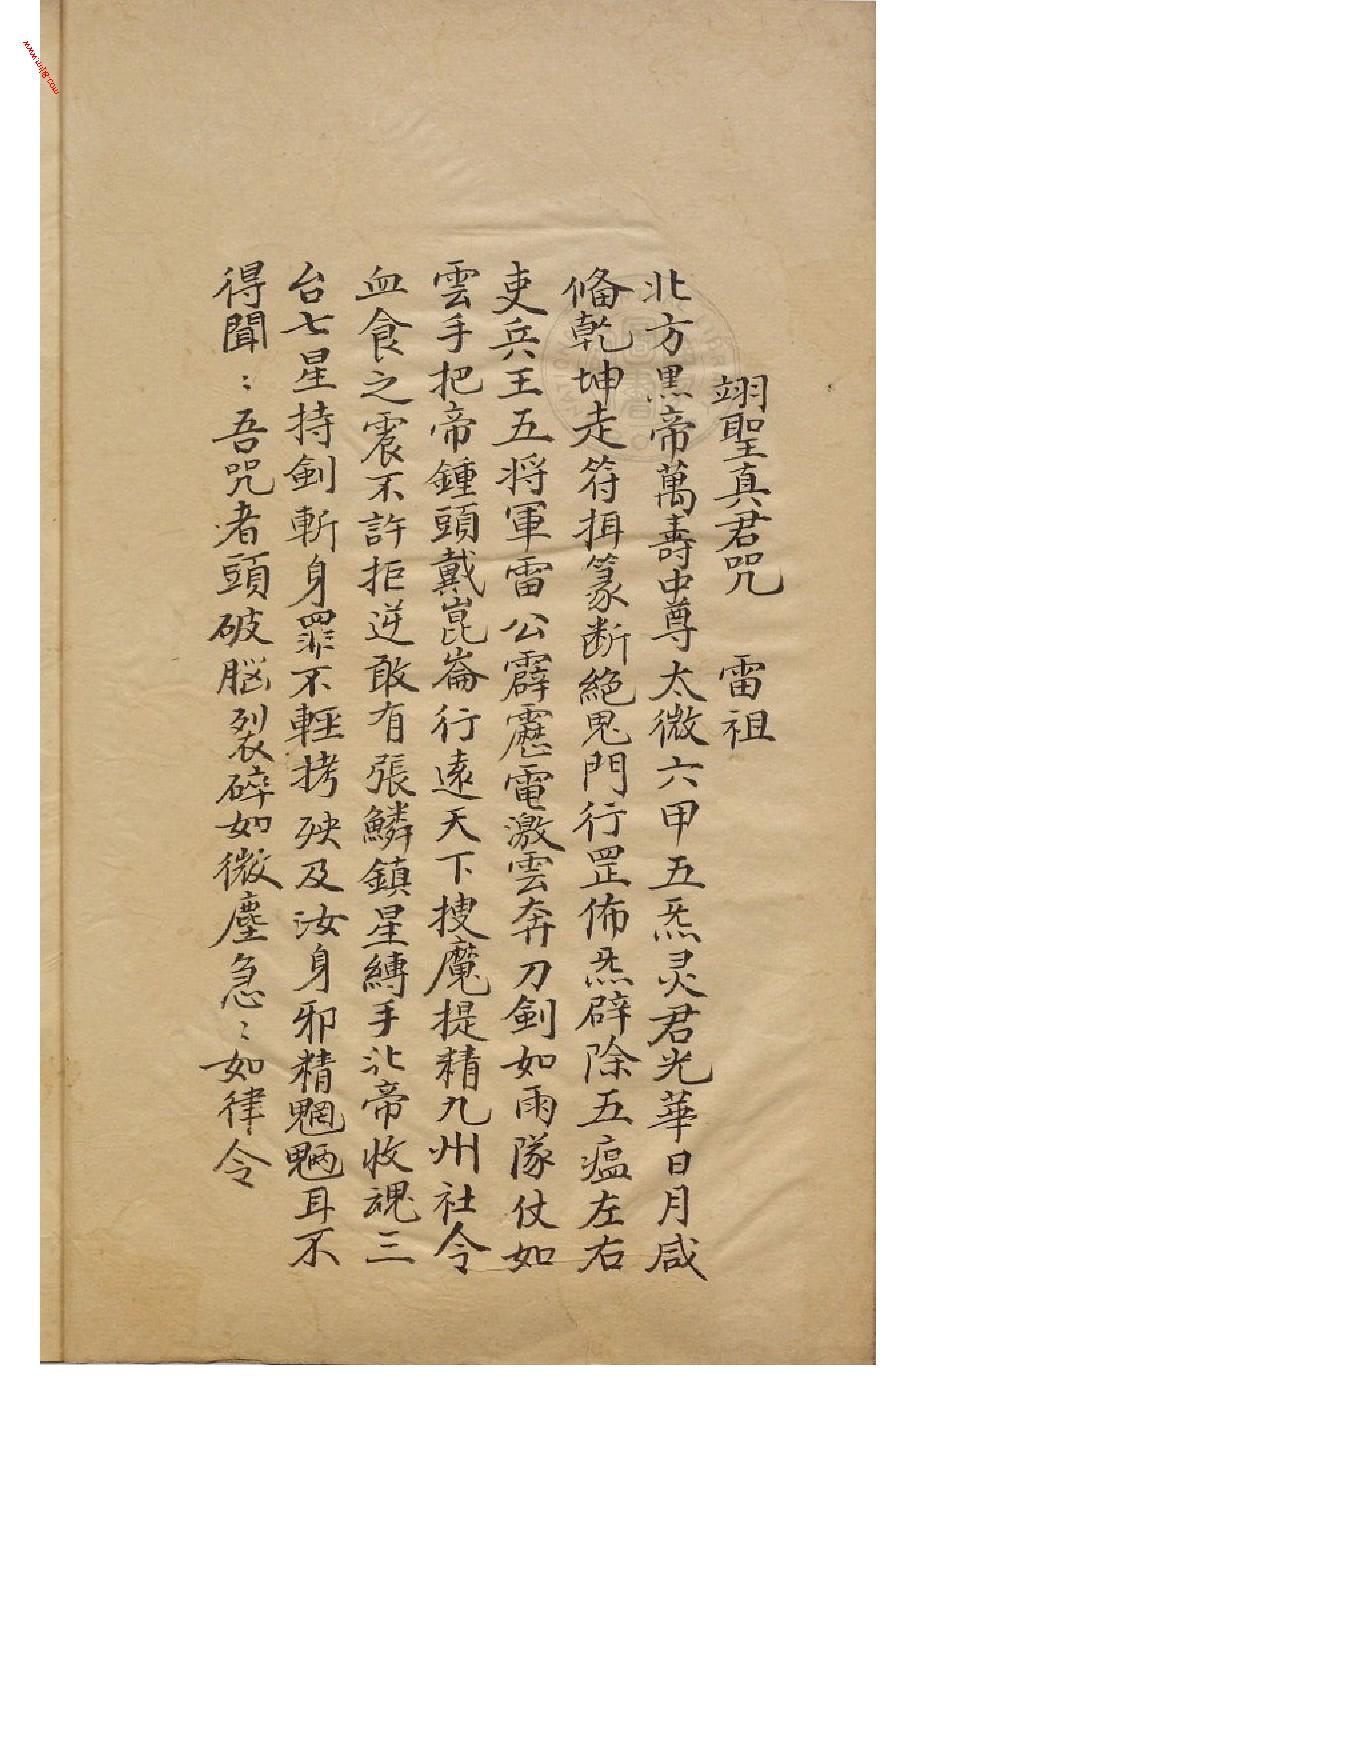 翊聖真君咒　雷祖
北方黑帝萬壽中尊太微六甲五炁灵君光華日月咸
俻乾坤走符揖篆断絕鬼門行罡佈炁辟除五瘟左右
吏兵王五将軍雷公霹靂電激雲奔刀劍如雨隊仗如
雲手把帝鍾頭戴崑崙行遠天下搜魔提精九州社令
血食之震不許拒逆敢有張鱗鎮星縛手北帝收魂三
台七星持劍斬身罪不輕拷殃及汝身邪精魍魎耳不
得聞〻吾咒者頭破脳裂碎如微塵急〻如律令
www.mjlg.com